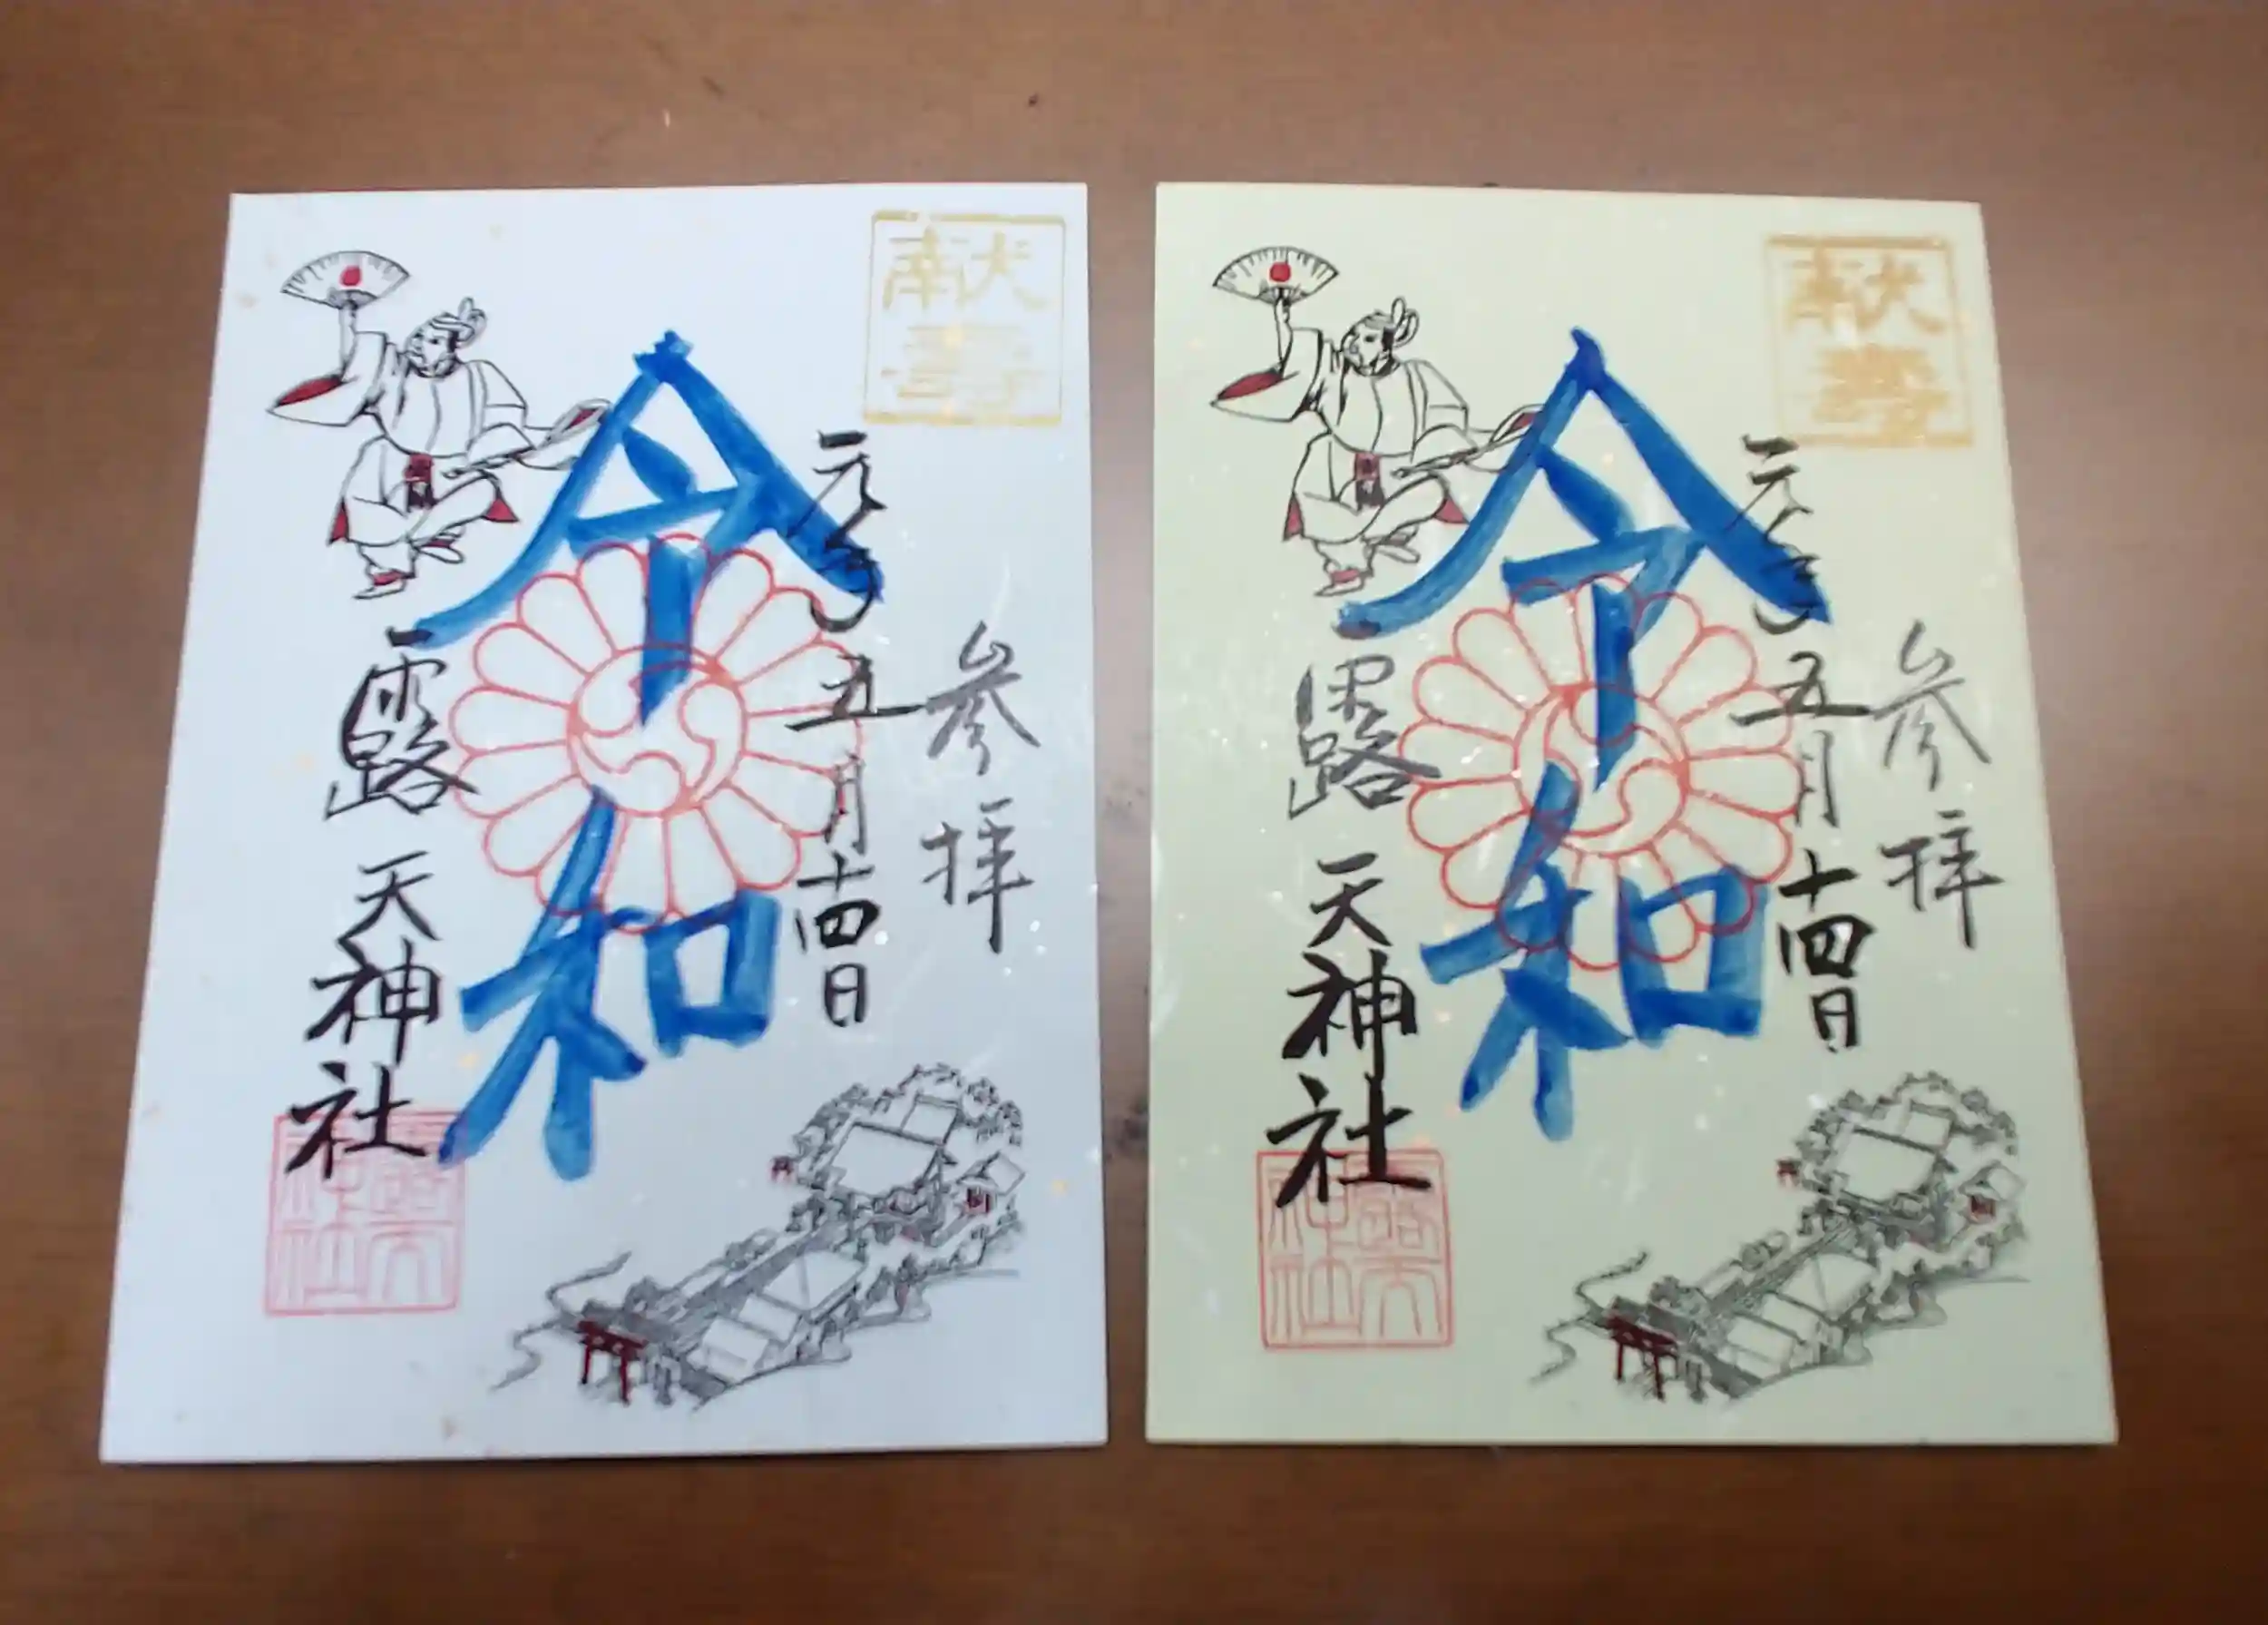 献
参拝
令和
元年五月十四日
露天神社
露天
神社
献
参拝
令和
元年五月十四日
露天神社
露天
神社